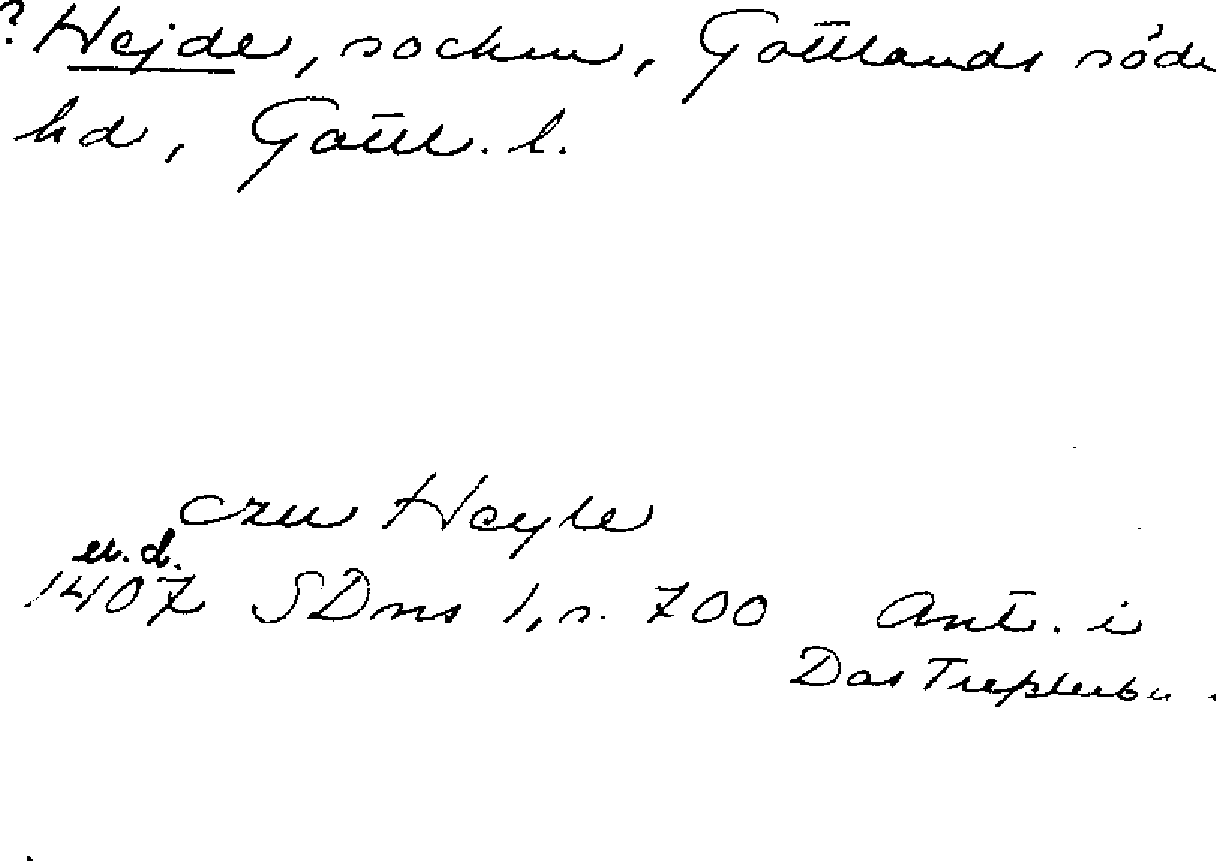 ? Hejde, socken, Gottlands söde
hd, Gottl. l.
czu Heyle
u. d.
1407 SDns 1, s. 700 Ant. i
Das Tresslerbu